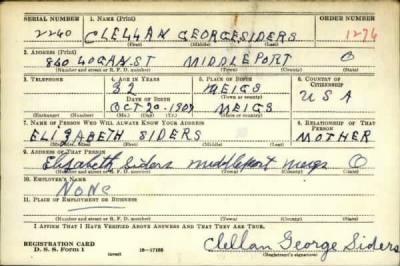 SERIAL NUMBER 1. NAME (Print) ORDER NUMBER
2260 CLELLAN GEORGE SIDERS 1276
(First) (Middle) (Last)
2. ADDRESS (Print)
860 LOGAN ST MIDDLEPORT O
(Number and street or R. F. D. number) (Town) (County) (State)
3. TELEPHONE 4. AGE IN YEARS 5. PLACE OF BIRTH 6. COUNTRY OF CITIZENSHIP
32 MEIGS
DATE OF BIRTH (Town or county) USA
OCT 20-1907 MEIGS
(Exchange) (Number) (Mo.) (Day) (Yr.) (State or country)
7. NAME OF PERSON WHO WILL ALWAYS KNOW YOUR ADDRESS 8. RELATIONSHIP OF THAT PERSON
ELIZABETH SIDERS MOTHER
(Mr., Mrs., Miss) (First) (Middle) (Last)
9. ADDRESS OF THAT PERSON
Elizabeth Siders middleport meigs O
(Number and street or R. F. D. number) (Town) (County) (State)
10. EMPLOYER'S NAME
NONE
11. PLACE OF EMPLOYMENT OR BUSINESS
(Number and street or R. F. D. number) (Town) (County) (State)
I AFFIRM THAT I HAVE VERIFIED ABOVE ANSWERS AND THAT THEY ARE TRUE.
REGISTRATION CARD
D. S. S. Form 1 (over) 16-17105 Clellan George Siders
(Registrant's signature)